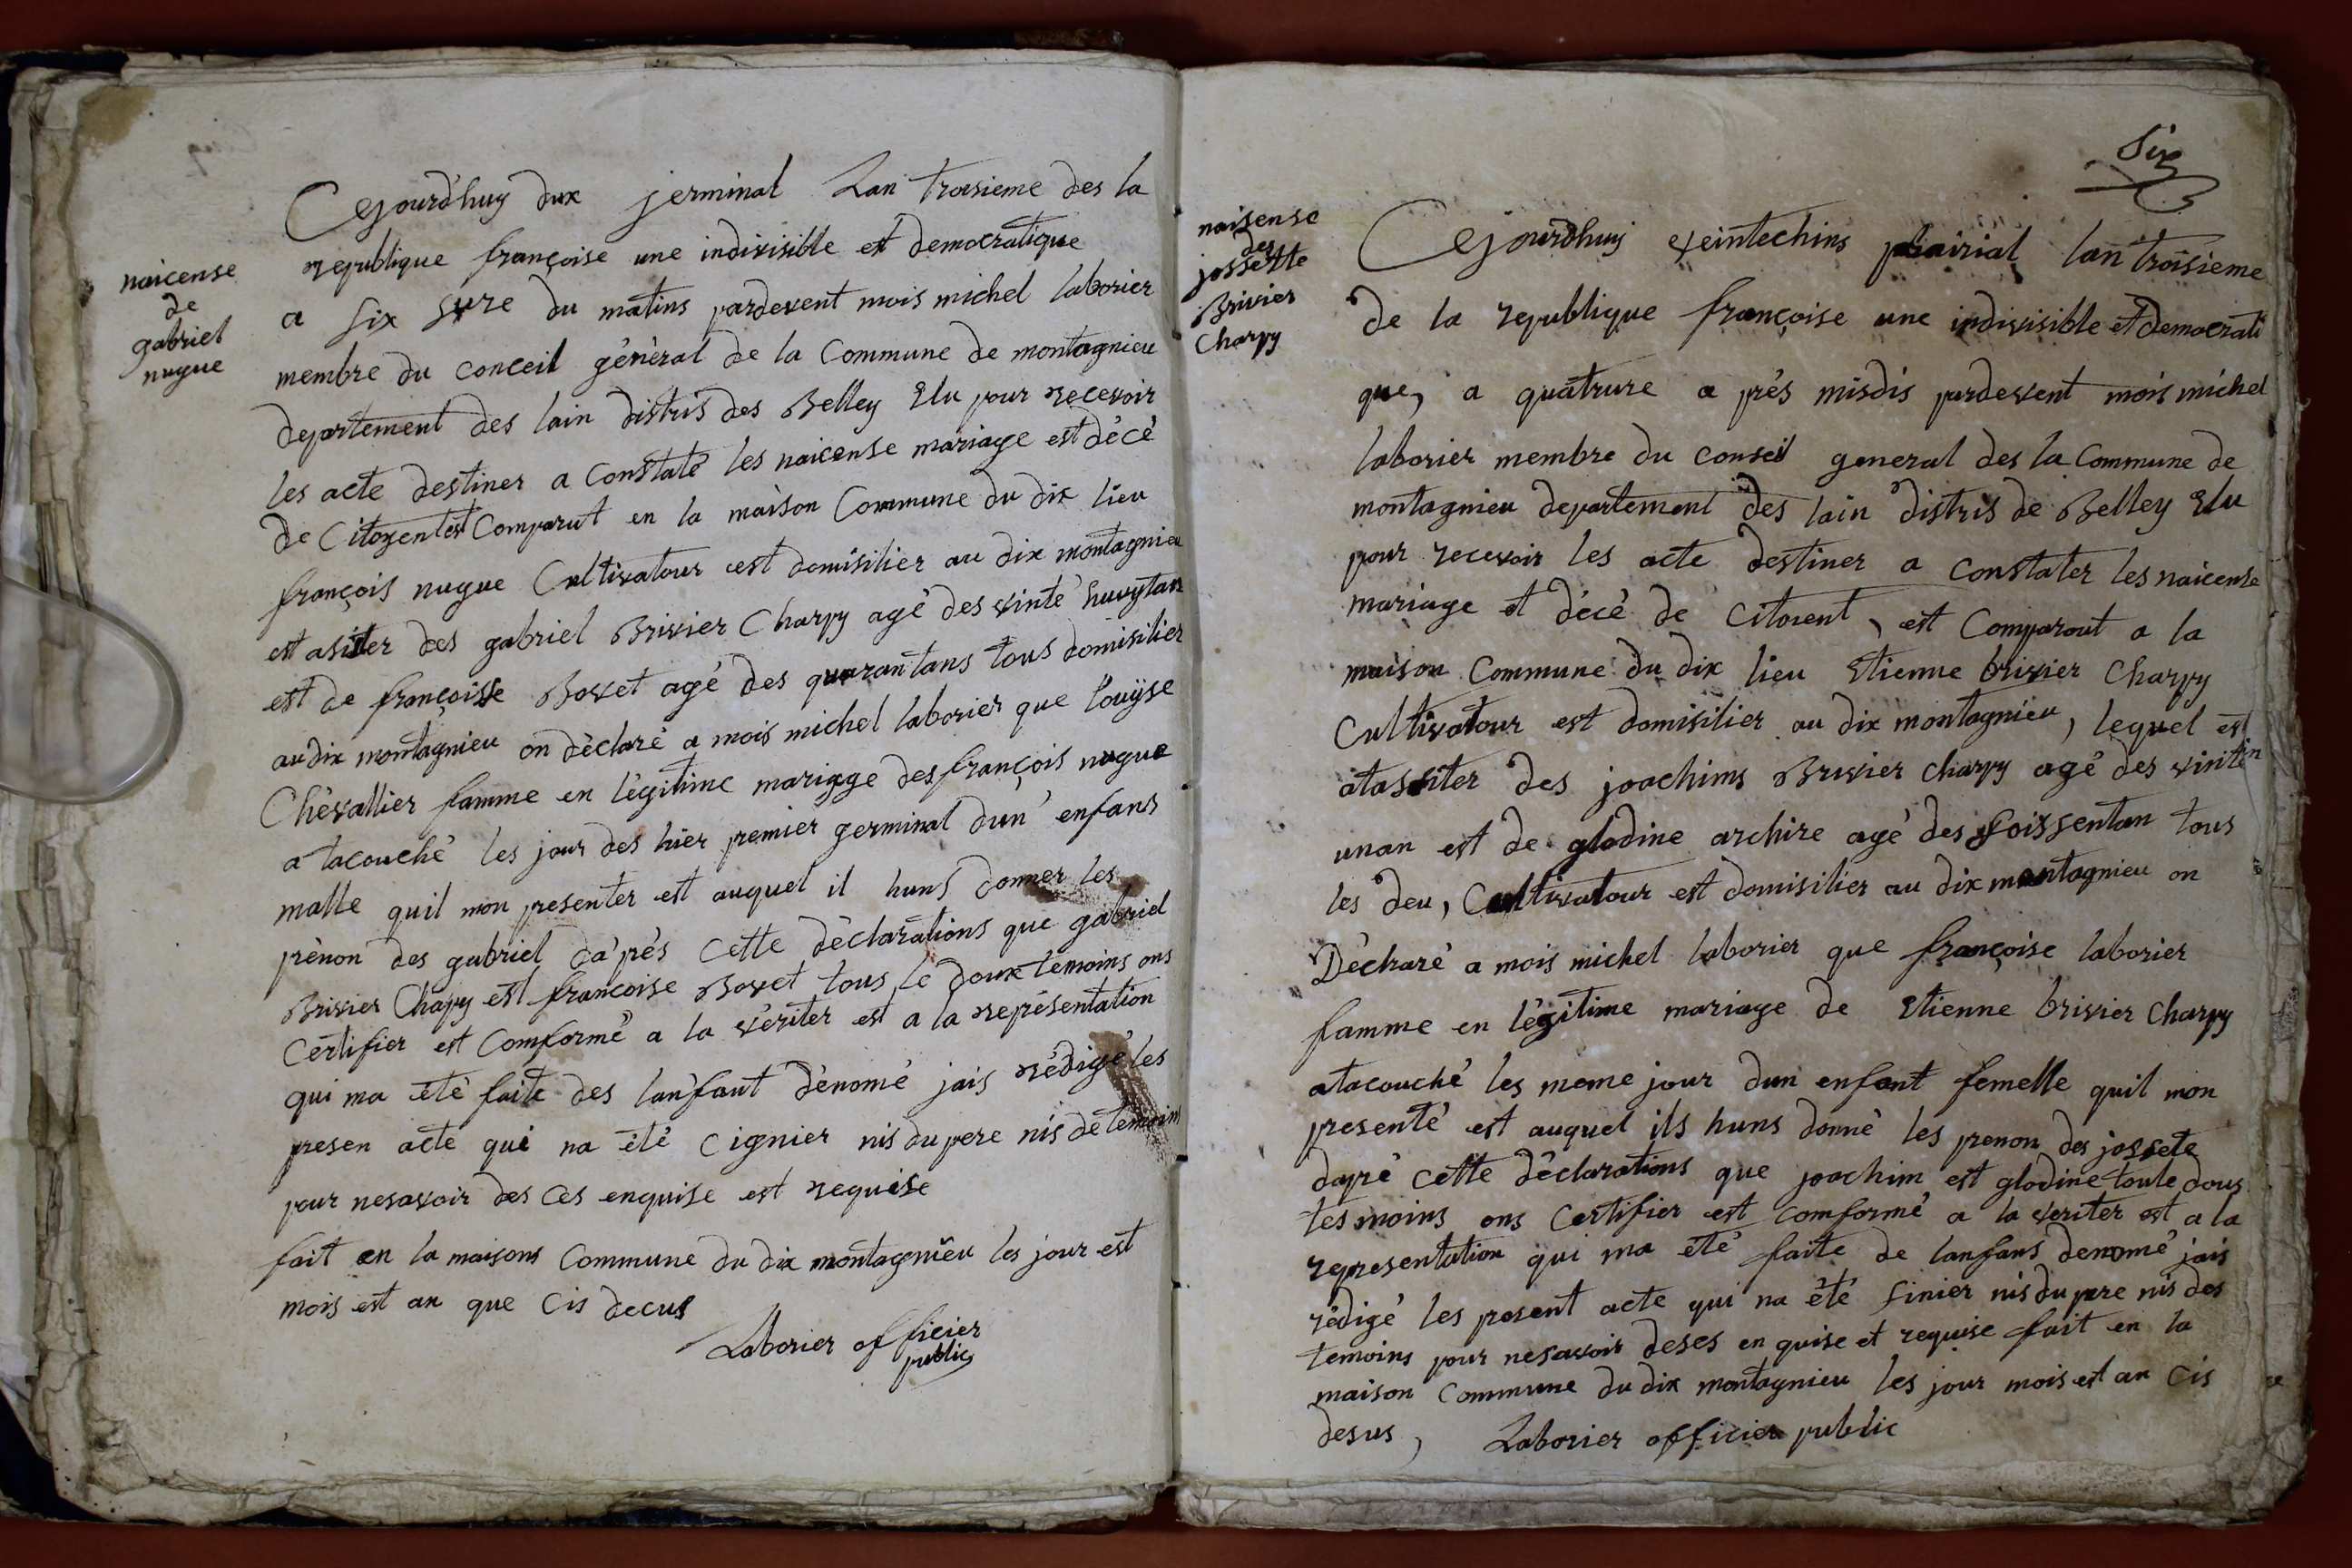 naicense
de
gabriel
nugue
Cejourdhuy dux jerminal Lan troisieme des la
republique françoise une indivisible est democratique
a six sure du matins pardevent mois michel laborier
membre du conceil général de la Commune de montagnieu
departement des lain distris des Belley Elu pour recevoir
les acte destiner a Constaté les naicense mariage est décé
de Citoyentest Comparut en la maison Commune du dix lieu
françois nugue Cultivatour est domisilier au dix montagnieu
est asister des gabriel Brivier Charpy agé des vinte huuytan
est de françoisse Bovet agé des quarantans tous domisilier
audix montagnieu on déclaré a mois michel laborier que louÿse
Chevallier famme en légitime mariage des françois nugue
a tacouché les jour des hier premier germinal dun enfans
malle quil mon presenter est auquel il huns donner les
prénon des gabriel dáprés Cette déclarations que gabriel
Brivier Chapy est francoise Bovet tous le doux temoins ons
Certifier est Comformé a la vériter est a la représentation
qui ma été faite des lanfant dénomé jais rédigé les
presen acte qui na été Cignier nis du pere nis de temoins
pour nesavoir des Ces enquise est requise
fait en la maisons Commune du dix montagnieu les jour est
mois est an que Cis decus
Laborier officier
public
Six
naisense
des
jossette
Brivier
Charpy
Cejourdhuy veintechins prairial lan troisieme
de la republique françoise une indivisible et democrati
que, a quatrure a prés misdis pardevent mois michel
laborier membre du conseil general des la Commune de
montagnieu departement des lain distris de Belley Elu
pour recevoir les acte destiner a constater les naicense
mariage et décé de Citorent, est Comparout a la
maison Commune du dix lieu Etienne brivier Charpy
Cultivatour est domisilier au dix montagnieu, lequel est
atassiter des joachims Brivier charpy agé des vintein
unan est de glodine archire agé des soissentan tous
les deu, Cultivatour est domisilier au dix montagnieu on
Décharé a mois michel laborier que françoise laborier
famme en légitime mariage de Etienne brivier Charpy
atacouché les meme jour dun enfant femelle quil mon
presenté est auquel ils huns donné les prenon des jossete
dapré cette déclarations que joachim est glodine toule dous
tesmoins ons Certifier est comformé a la veriter est a la
representation qui ma été faite de lanfans denomé jais
rédigé les present acte qui na été sinier nis du pere nis des
temoins pour nesavoir deses en quise et requise fait en la
maison Commune du dix montagnieu les jour mois est an Cis
desus, Laborier officier public